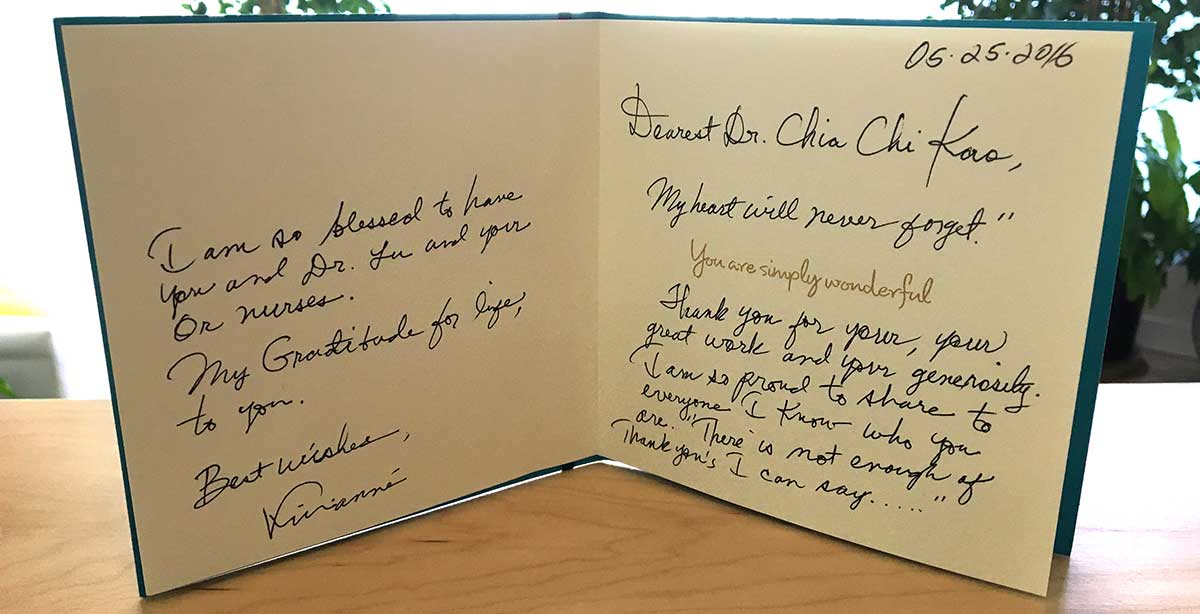 05.25.2016
Dearest Dr. Chia Chi Kao,
My heart will never forget."
You are simply wonderful
Thank you for your, your
great work and your generosity.
I am so proud to share to
everyone I know who you
are. "There is not enough of
Thank you's I can say....."
I am so blessed to have
you and Dr. Lu and your
Or nurses.
My Gratitude for life,
to you.
Best wishes,
Vivianné